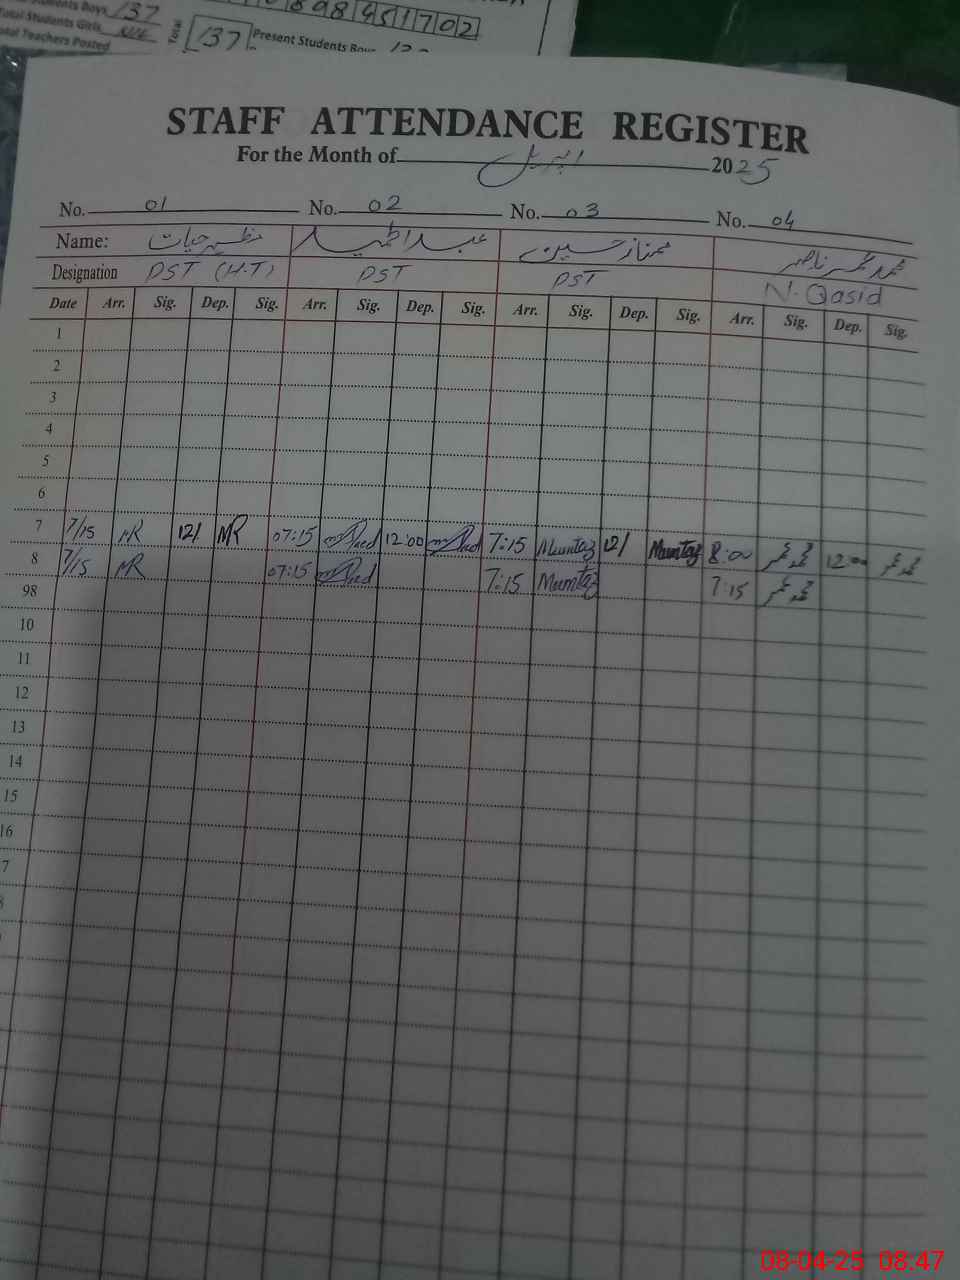 Students Boys 137
Total Students Girls
Total Teachers Posted
898451702
Total 137 Present Students Boys
STAFF ATTENDANCE REGISTER
For the Month of اپریل 2025
No. 01 No. 02 No. 03 No. 04
Name: مظہر حیات ممتاز حسین
Designation PST (H.T) PST PST N-Qasid
Date Arr. Sig. Dep. Sig. Arr. Sig. Dep. Sig. Arr. Sig. Dep. Sig. Arr. Sig. Dep. Sig.
1
2
3
4
5
6
7 7/15 MR 12/ MR 07:15 12:00 7:15 Mumtaz 12/ Mumtaz 8:00 12:00
8 7/15 MR 07:15 7:15 Mumtaz 7:15
98
10
11
12
13
14
15
16
7
08-04-25 08.47